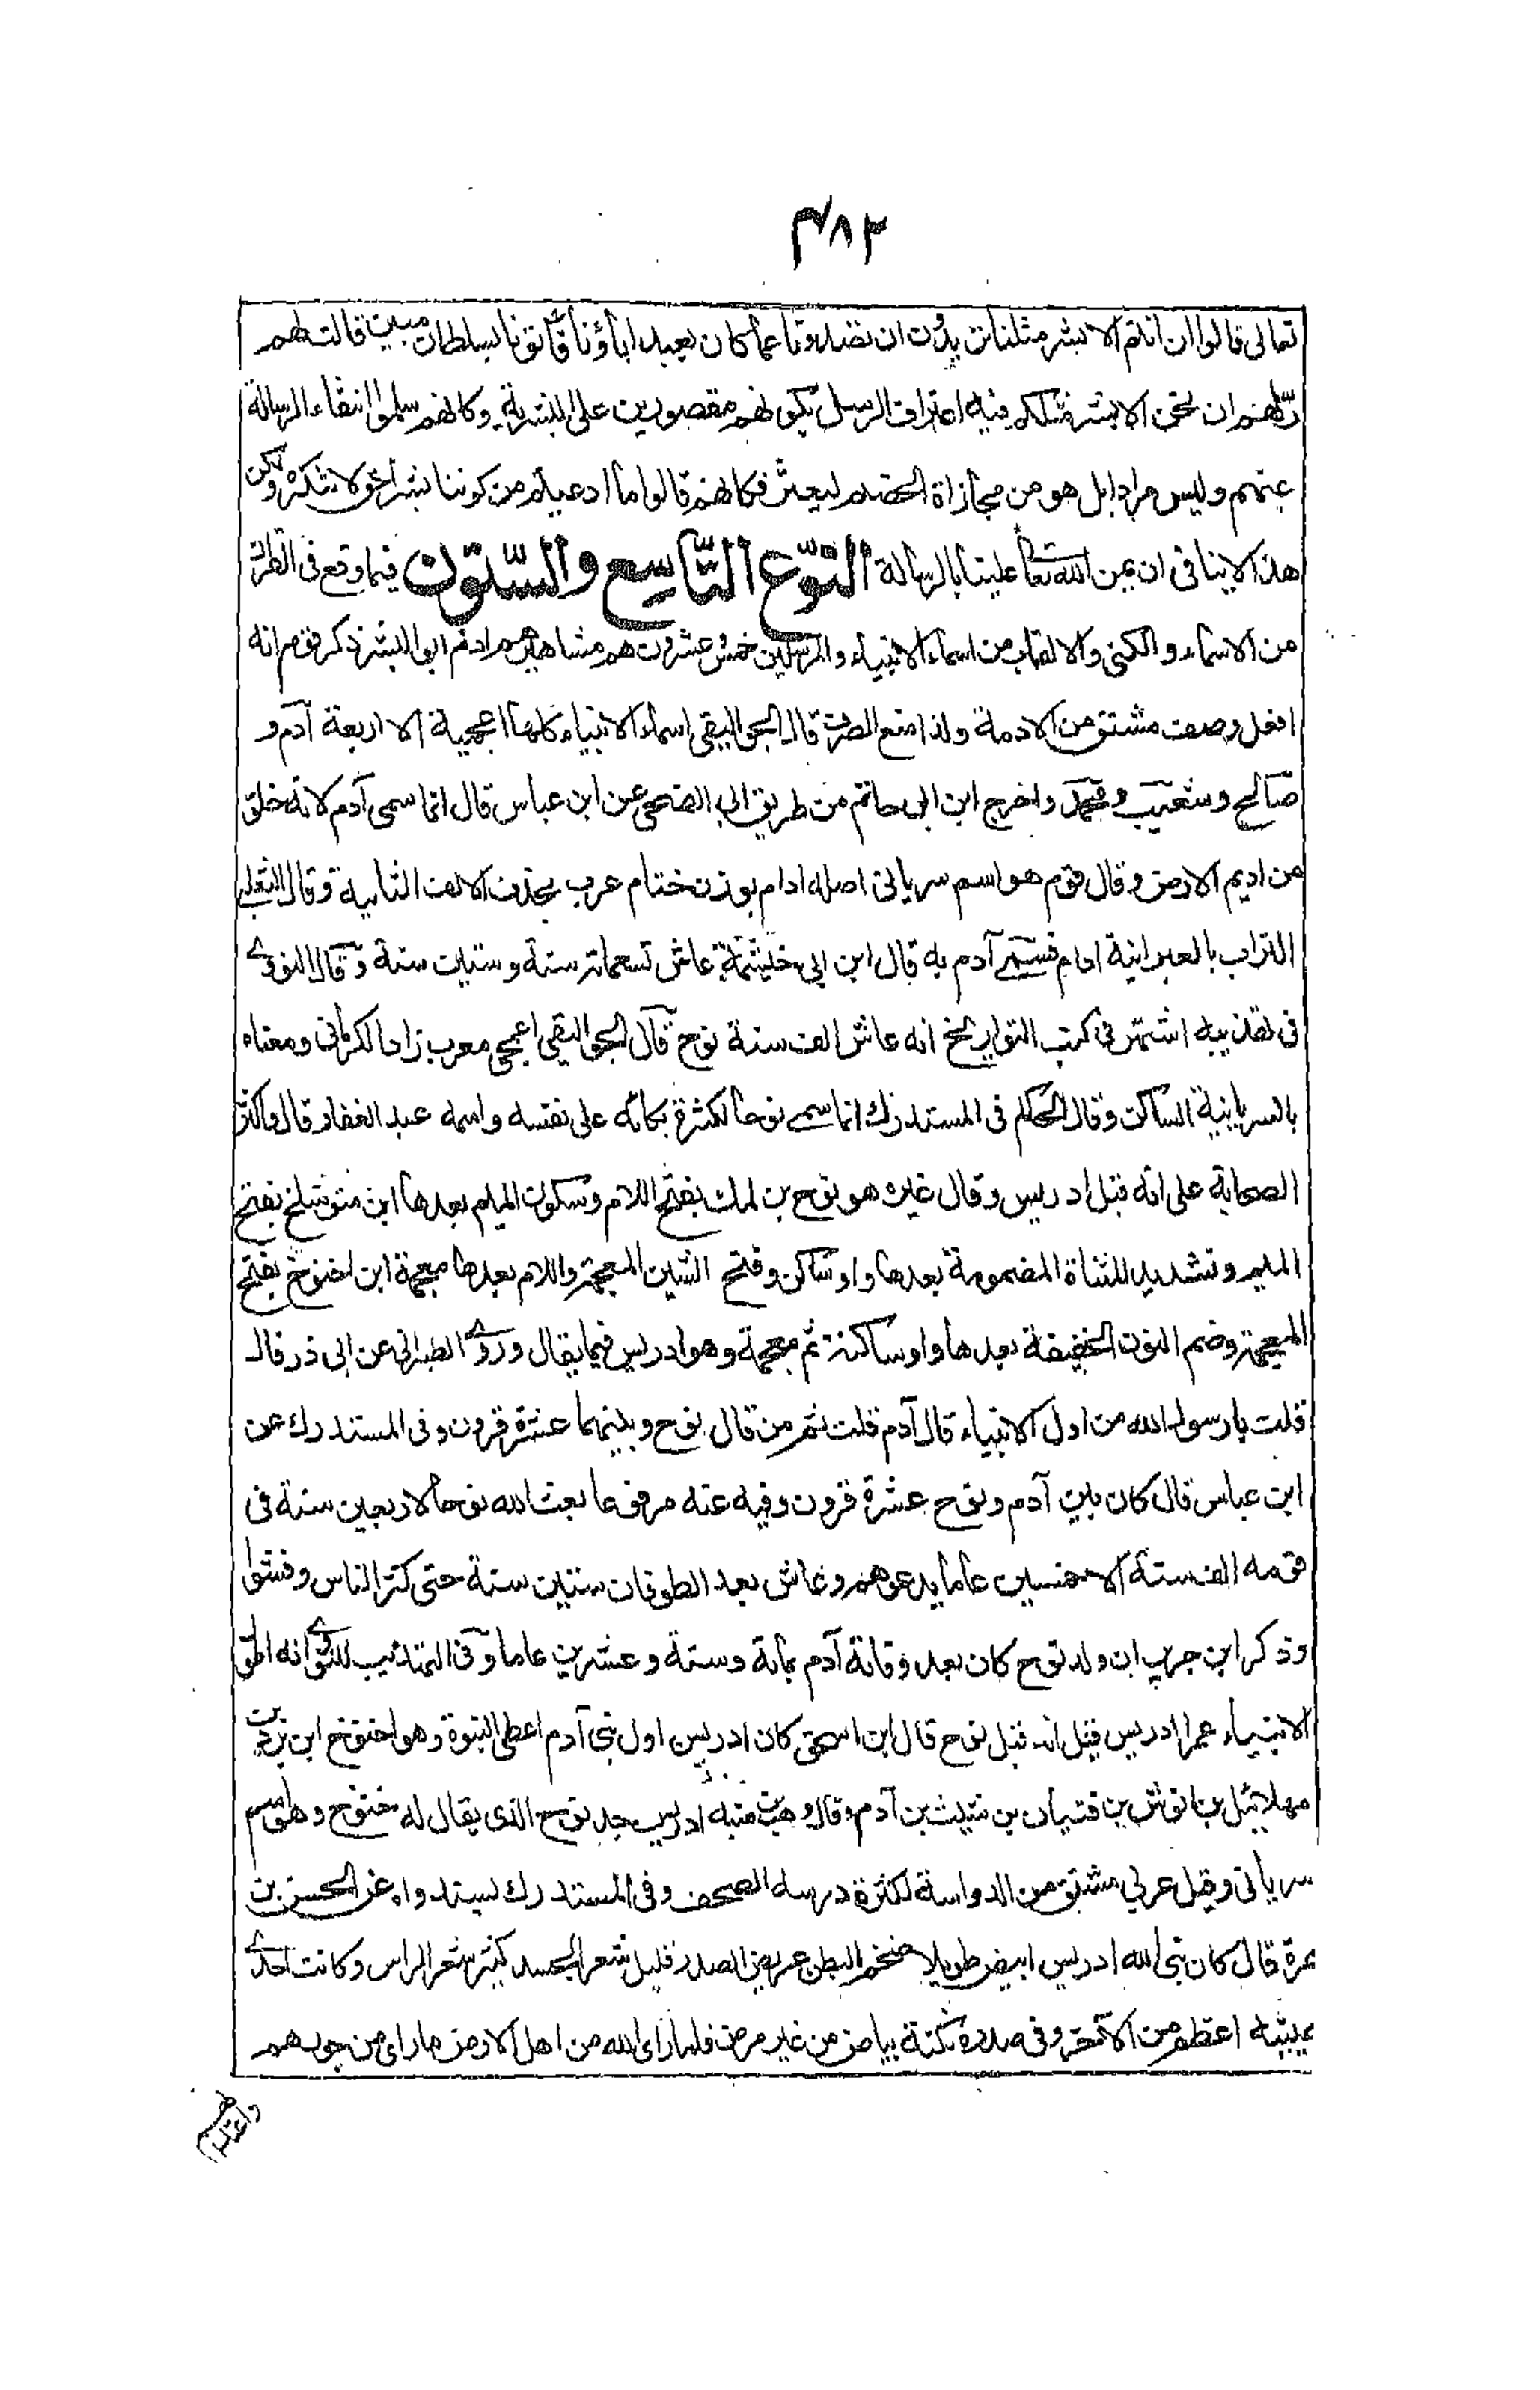 ٣٨٢
تعالى قالوا ان انتم الا بشر مثلنا تريدون ان تصدونا عما كان يعبد اباؤنا فأتونا بسلطان مبين قالت لهم
رسلهم ان نحن الا بشر مثلكم فيه اعتراف الرسل بكونهم مقصورين على البشرية وكانهم سلموا انتفاء الرسالة
عنهم وليس مرادا بل هو من مجاراة الخصم ليعثر فكانهم قالوا ما ادعيتم من كوننا بشرا حق لا ننكره ولكن
هذا لا ينافى ان يمن الله تعا علينا بالرسالة النّوع التّاسع والسّتّون فيما وقع فى القرآن
من الاسماء والكنى والالقاب من اسماء الانبياء والمرسلين خمس وعشرون هم مشاهيرهم ادم ابو البشر ذكر قوم انه
افعل وصف مشتق من الادمة ولذا منع الصرف قال الجواليقى اسماء الانبياء كلها اعجمية الا اربعة آدم و
صالح وشعيب ومحمد واخرج ابن ابى حاتم من طريق ابى الضحى عن ابن عباس قال انما سمى آدم لانه خلق
من اديم الارض وقال قوم هو اسم سريانى اصله ادام بوزن ختام عرب بحذف الالف الثانية وقال الثعلبى
التراب بالعبرانية ادام فسمى آدم به قال ابن ابى خيثمة عاش تسعمائة سنة وستين سنة وقال النووى
فى تهذيبه اشتهر فى كتب التواريخ انه عاش الف سنة نوح قال الجواليقى اعجمى معرب زاد الكرمانى ومعناه
بالسريانية الساكن وقال الحاكم فى المستدرك انما سمى نوحا لكثرة بكائه على نفسه واسمه عبد الغفار قال واكثر
الصحابة على انه قبل ادريس وقال غيره هو نوح بن لمك بفتح اللام وسكون الميم بعدها ابن متوشلخ بفتح
الميم وتشديد المثناة المضمومة بعدها واو ساكن وفتح الشين المعجمة واللام بعدها معجمة ابن اخنوخ بفتح
المعجمة وضم النون الخفيفة بعدها واو ساكنة ثم معجمة وهو ادريس فيما يقال وروى الطبرانى عن ابى ذر قال
قلت يا رسول الله من اول الانبياء قال آدم قلت ثم من قال نوح وبينهما عشرة قرون وفى المستدرك عن
ابن عباس قال كان بين آدم ونوح عشرة قرون وفيه عنه مرفوعا بعث الله نوحا لاربعين سنة فى
قومه الف سنة الا خمسين عاما يدعوهم وعاش بعد الطوفان ستين سنة حتى كثر الناس وفشوا
وذكر ابن جرير ان ولد نوح كان بعد وفاة آدم بمائة وستة وعشرين عاما وفى التهذيب للنووى انه اطول
الانبياء عمرا ادريس قيل انه قبل نوح قال ابن اسحق كان ادريس اول بنى آدم اعطى النبوة وهو اخنوخ ابن يرد بن
مهلائيل بن انوش بن قينان بن شيث بن آدم وقال وهب بن منبه ادريس جد نوح الذى يقال له خنوخ وهو اسم
سريانى وقيل عربى مشتق من الدراسة لكثرة درسه الصحف وفى المستدرك بسند واه عن الحسن بن
سمرة قال كان نبى الله ادريس ابيض طويلا ضخم البطن عريض الصدر قليل شعر الجسد كثير شعر الراس وكانت احدى
عينيه اعظم من الاخرى وفى صدره نكتة بياض من غير مرض فلما راى الله من اهل الارض ما راى من جورهم